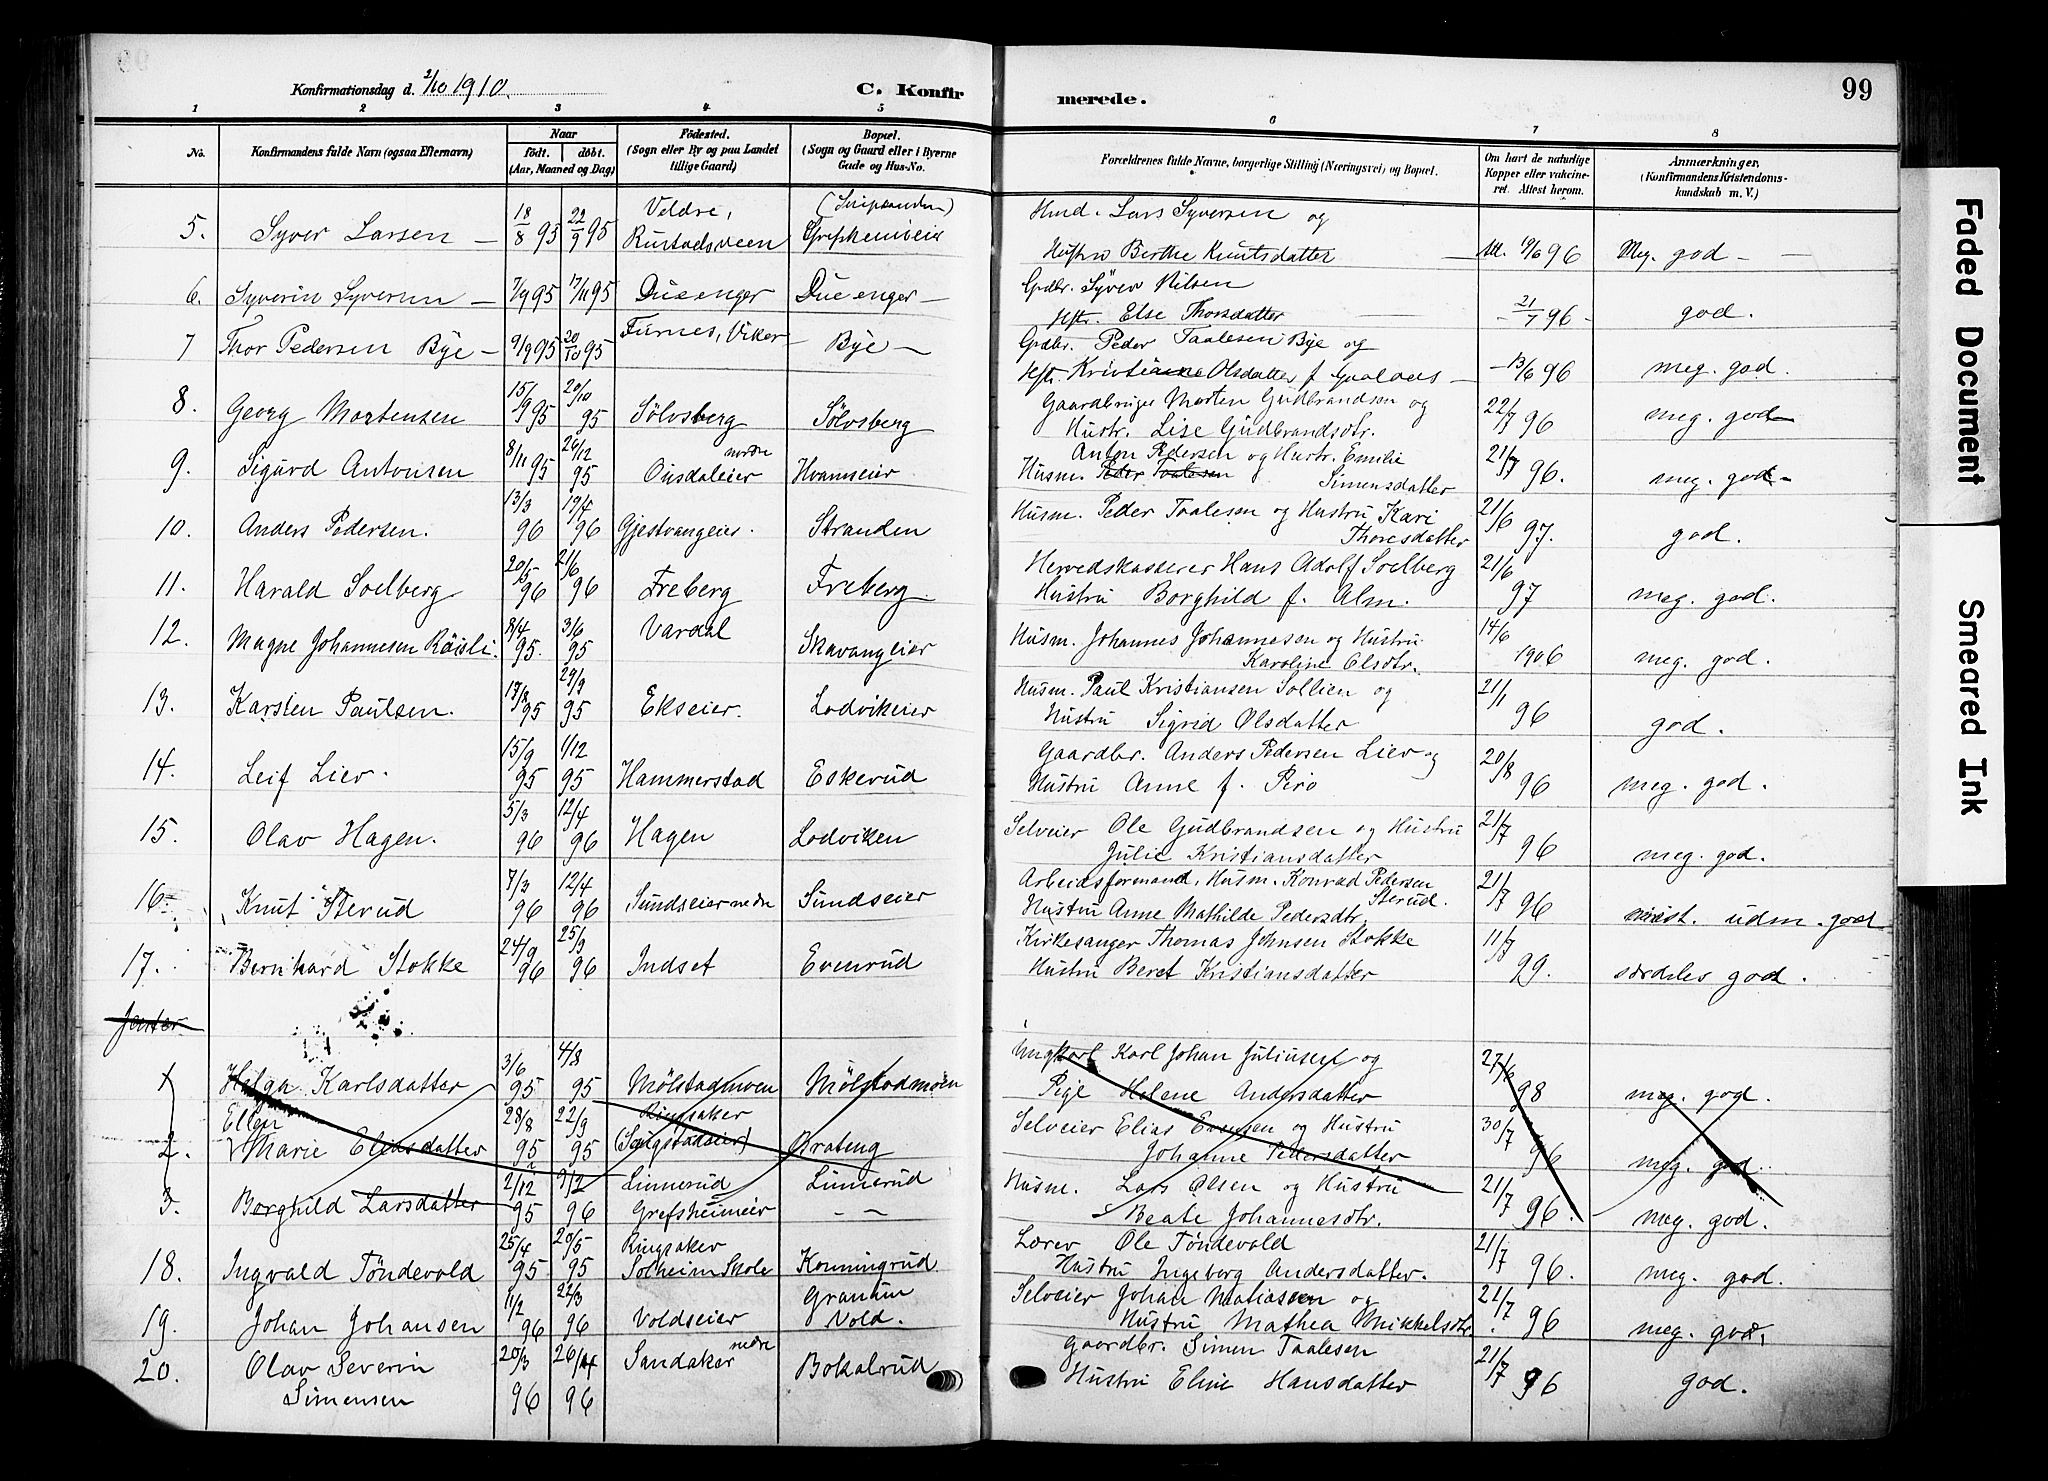 Konfirmationsdag d. 2/10 1910.
C. Konfirmerede.
99
1 2 3 4 5 6 7 8
No. Konfirmandens fulde Navn (ogsaa Efternavn) Naar født. døbt. (Aar, Maaned og Dag) Födested. (Sogn eller By og paa Landet tillige Gaard) Bopæl. (Sogn og Gaard eller i Byerne Gade og Hus-No. Forældrenes fulde Navne, borgerlige Stilling (Næringsvei) og Bopæl. Om havt de naturlige Kopper eller vakcineret. Attest herom. Anmærkninger, (Konfirmandens Kristendomskundskab m. V.)
5. Syver Larsen – 18/8 95 22/9 95 Veldre, Rustadsveen
Husd. Lars Syversen og
Hustru Berthe Knutsdatter 96 Meg. god –
6. Syverin Syversen – 7/9 95 17/11 95 Dueenger Dueenger –
Gdbr. Syver Nilsen
Hstr. Else Thorsdatter – 21/7 96 – god.
7 Thor Pedersen Bye – 9/9 95 20/10 95 Furnes, Viker – Bye –
Gdbr. Peder Taalesen Bye og
Hstr. Kristiane Olsdatter f. – 13/6 96 meg. god.
8. Georg Mortensen 15/9 95 20/10 95 Sölvsberg Sölvsberg
Gaardbruger Morten Gudbrandsen og
Hustr. Lise Gudbrandsdtr. 22/7 96 meg. god
9. Sigurd Antonsen 8/11 95 26/12 95 Onsdaleier nordre Hvamseier
Anton Pedersen og Hustr. Emilie
Husm. Peder Taalesen Simensdatter 21/7 96. meg. god –
10. Anders Pedersen. 13/3 96 19/4 96 Gjestvangeier. Stranden
Husm. Peder Taalesen og Hustru Kari
Thoresdatter 21/6 97. god.
11. Harald Soelberg 20/5 96 21/6 96 Freberg Freberg
Herredskasserer Hans Adolf Soelberg
Hustru Borghild f. Alm. 21/6 97 meg. god.
12. Magne Johannesen Röisli. 8/4 95. 3/6 95 Vardal Skavangeier
Husm. Johannes Johannesen og Hustru
Karoline Olsdtr. 14/6 1906 meg. god.
13. Karsten Paulsen. 17/8 95 29/9 95 Ekseier. Lodvikeier
Husm. Paul Kristiansen Sollien og
Hustru Sigrid Olsdatter 21/1 96 god.
14. Leif Lier. 15/9 95 1/12 95 Hammerstad Eskerud
Gaardbr. Anders Pedersen Lier og
Hustru Anne f. Piro 20/8 96 meg. god.
15. Olav Hagen. 5/3 96 12/4 96 Hagen Lodviken
Selveier Ole Gudbrandsen og Hustru
Julie Kristiansdatter 21/7 96 meg. god.
16 Knut Sterud 7/3 96 12/4 96 Sundseier nedre Sundseier
Arbeidsformand, Husm. Konrad Pedersen
Sterud.
Hustru Anne Mathilde Pedersdtr. 21/7 96 udm. god
17. Bernhard Stokke 24/9 96 25/9 96 Indset Evenrud
Kirkesanger Thomas Johnsen Stokke
Hustru Beret Kristiansdatter 11/7 99. særdeles god.
Jenter
1 Helga Karlsdatter 3/6 95 4/8 95 Mölstadmoen Mölstadmoen
Ungkarl Karl Johan Juliusen og
Pige Helene Andersdatter 27/6 98 meg. god.
2. Ellen Marie Eliasdatter 28/8 95 22/9 95 Ringsaker Brateng
Selveier Elias Evensen og Hustru
Johanne Pedersdatter 30/7 96 meg. god.
3. Borghild Larsdatter 2/12 95 9/2 96 Linnerud Grefsheimeier Linnerud – –
Husm. Lars Olsen og Hustru
Beate Johannesdtr. 21/7 96. meg. god.
18. Ingvald Töndevold 25/4 95 20/5 95 Ringsaker Solheim Skole Konningrud
Lærer Ole Töndevold
Hustru Ingeborg Andersdatter. 21/7 96. meg. god.
19. Johan Johansen 11/2 96 22/3 96 Voldseier Granum Vold.
Selveier Johan Matiassen og
Hustru Mathea Mikkelsdtr. 21/7 96 meg. god.
20. Olav Severin Simensen 20/3 96 26/4 96 Sandaker nedre Bokalrud
Gaardbr. Simen Taalesen
Hustru Eline Hansdatter 21/7 96 god.
Faded Document
Smeared Ink